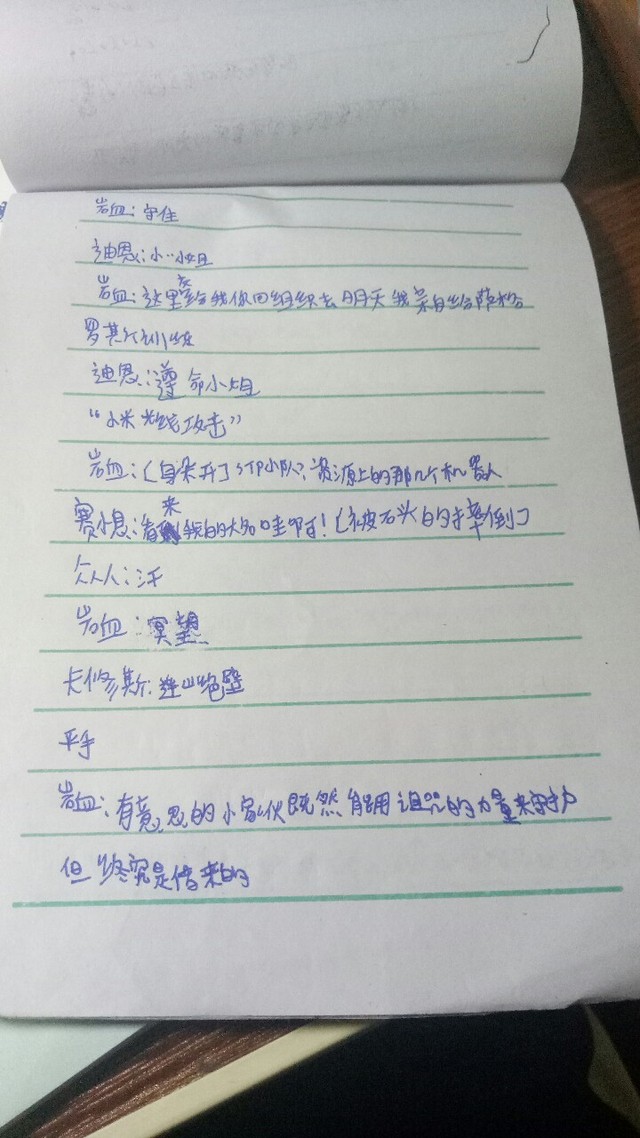 岩血：守住
迪恩：小…小姐
岩血：这里交给我你回组织去明天我亲自给萨格
罗斯训练
迪恩：遵命小姐
“小米光线攻击”
岩血：〔自朵开〕STP小队？资源上的那几个机器人
赛小息：看来我的大名哇啊！〔被石头的摔倒〕
众人：汗
岩血：冥望
卡修斯：连山绝壁
平手
岩血：有意思的小家伙既然能用诅咒的力量来守护
但终究是借来的